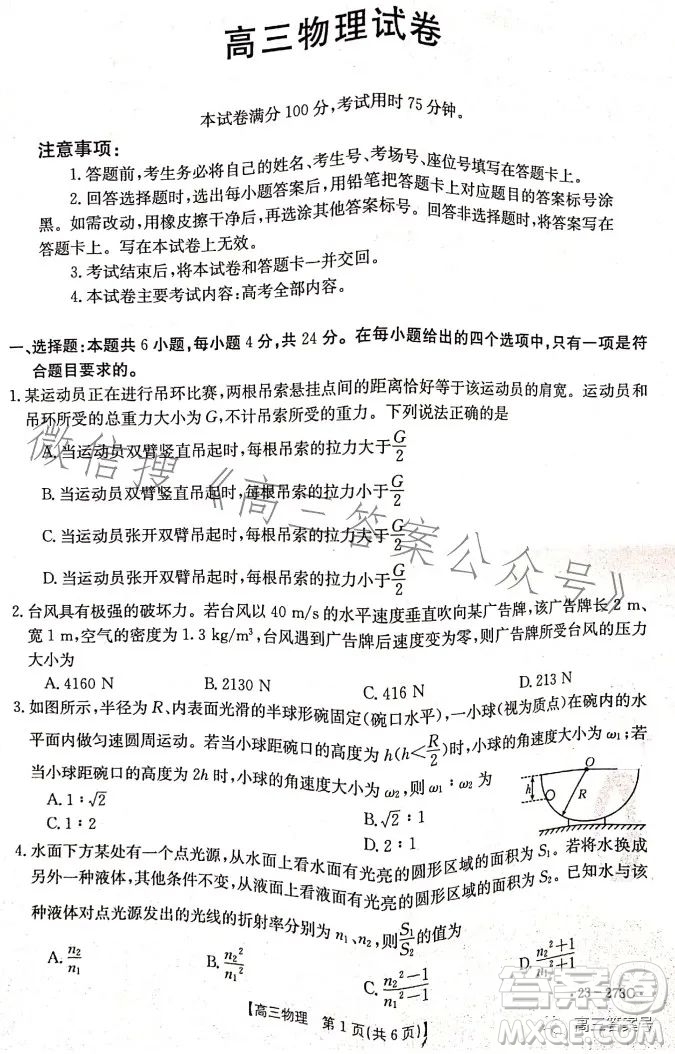 高三物理试卷
本试卷满分100分,考试用时75分钟。
注意事项:
1.答题前,考生务必将自己的姓名、考生号、考场号、座位号填写在答题卡上。
2.回答选择题时,选出每小题答案后,用铅笔把答题卡上对应题目的答案标号涂
黑。如需改动,用橡皮擦干净后,再选涂其他答案标号。回答非选择题时,将答案写在
答题卡上。写在本试卷上无效。
3.考试结束后,将本试卷和答题卡一并交回。
4.本试卷主要考试内容:高考全部内容。
一、选择题:本题共6小题,每小题4分,共24分。在每小题给出的四个选项中,只有一项是符
合题目要求的。
1.某运动员正在进行吊环比赛,两根吊索悬挂点间的距离恰好等于该运动员的肩宽。运动员与
吊环所受的总重力大小为G,不计吊索所受的重力。下列说法正确的是
A.当运动员双臂竖直吊起时,每根吊索的拉力大于G/2
B.当运动员双臂竖直吊起时,每根吊索的拉力小于G/2
C.当运动员张开双臂吊起时,每根吊索的拉力大于G/2
D.当运动员张开双臂吊起时,每根吊索的拉力小于G/2
2.台风具有极强的破坏力。若台风以40 m/s的水平速度垂直吹向某广告牌,该广告牌长2 m、
宽1 m,空气的密度为1.3 kg/m³,台风遇到广告牌后速度变为零,则广告牌所受台风的压力
大小为
A.4160 N B.2130 N C.416 N D.213 N
3.如图所示,半径为R、内表面光滑的半球形碗固定(碗口水平),一小球(视为质点)在碗内的水
平面内做匀速圆周运动。若小球距碗口的高度为h(h<R/2)时,小球的角速度大小为ω₁;若
当小球距碗口的高度为2h时,小球的角速度大小为ω₂,则ω₁∶ω₂为
A.1∶√2 B.√2∶1
C.1∶2 D.2∶1
O
h
R
4.水面下方某处有一个点光源,从水面上看水面有光亮的圆形区域的面积为S₁。若将水换成
另外一种液体,其他条件不变,从液面上看液面有光亮的圆形区域的面积为S₂。已知水与该
种液体对点光源发出的光线的折射率分别为n₁、n₂,则S₁/S₂的值为
A.n₂/n₁ B.n₂²/n₁² C.(n₂²-1)/(n₁²-1) D.(n₂²+1)/(n₁²+1)
【高三物理 第1页(共6页)】
·23-273C·
微信搜《高三答案公众号》
答案圈
高三答案号